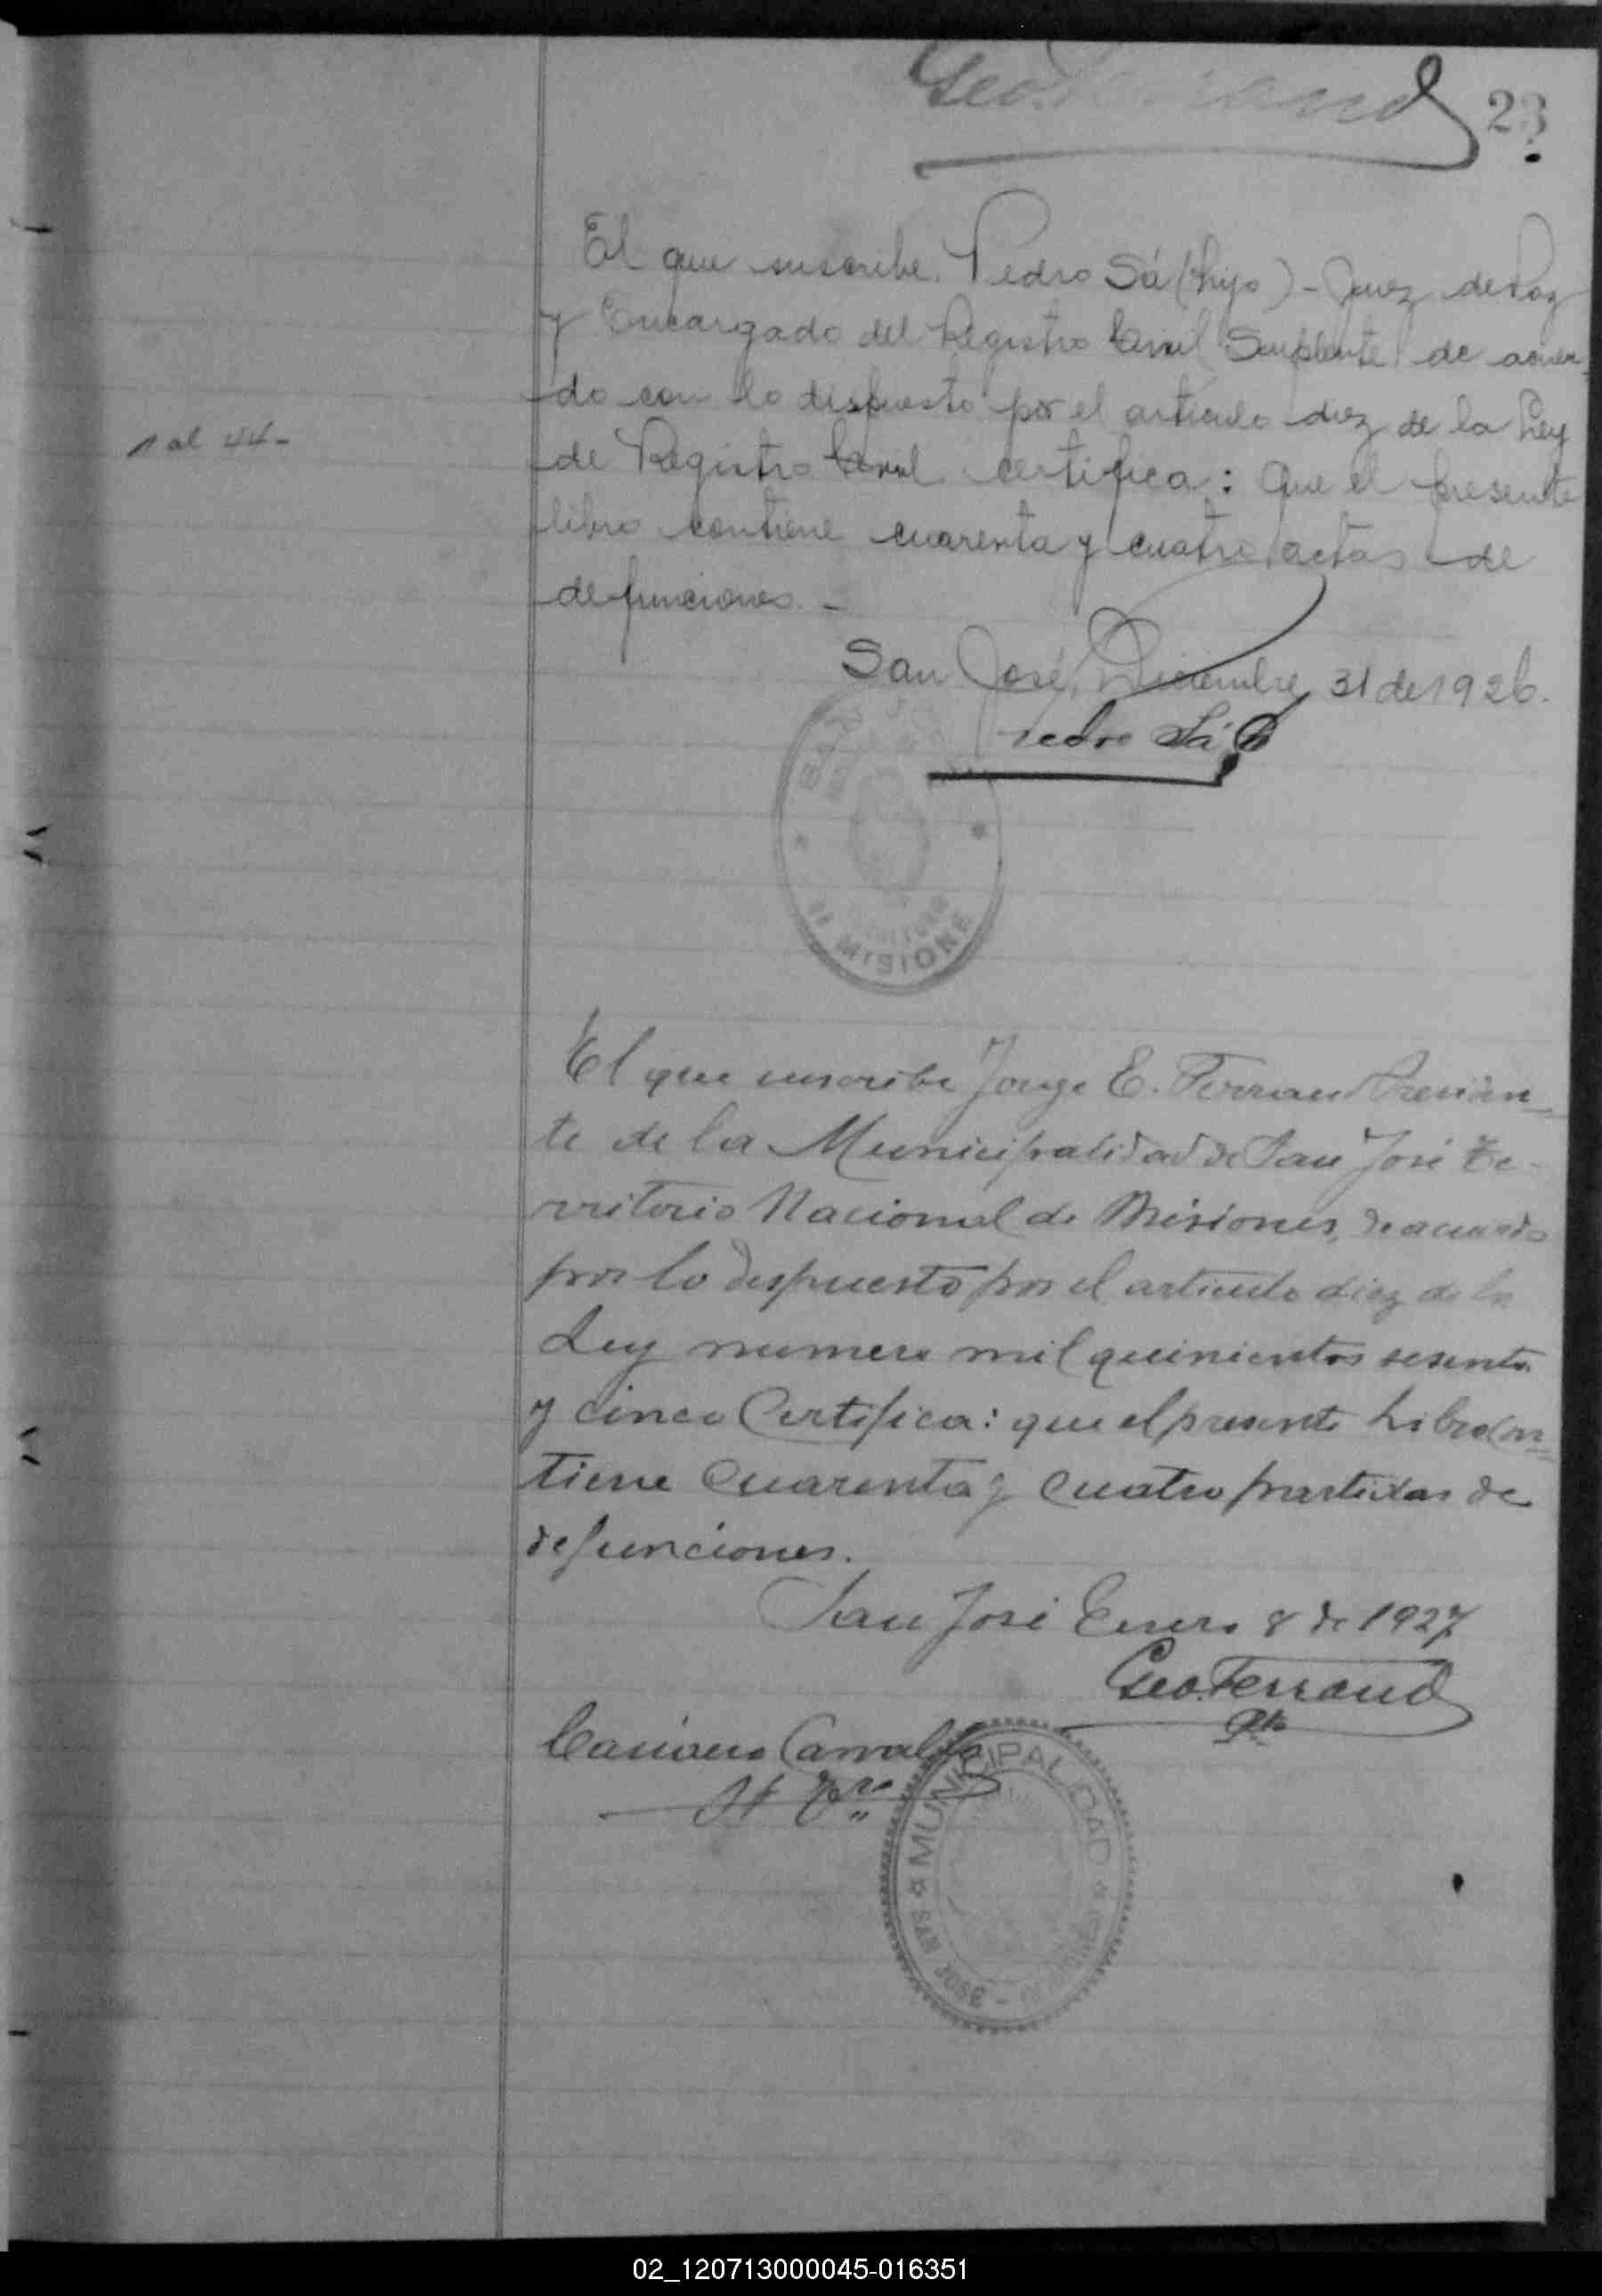 Geo. Ferrand
23
El que suscribe. Pedro Sá (hijo) - Juez de Paz
y Encargado del Registro Civil Suplente de acuer-
do con lo dispuesto por el artículo diez de la Ley
1 al 44-
de Registro Civil certifica: Que el presente
libro contiene cuarenta y cuatro actas de
defunciones. -
San José, Diciembre 31 de 1926.
Pedro Sá h
SAN
DE MISIONE
El que suscribe Jorge E. Ferrand Presiden-
te de la Municipalidad de San José Te-
rritorio Nacional de Misiones, de acuerdo
por lo dispuesto por el articulo diez de la
Ley numero mil quinientos sesenta
y cinco Certifica: que el presente Libro con-
tiene Cuarenta y Cuatro partidas de
defunciones.
San José Enero 8 de 1927
Geo. Ferrand
Pte
Casiano Carvallo
MUNICIPALIDAD
SAN JOSE -
02_120713000045-016351